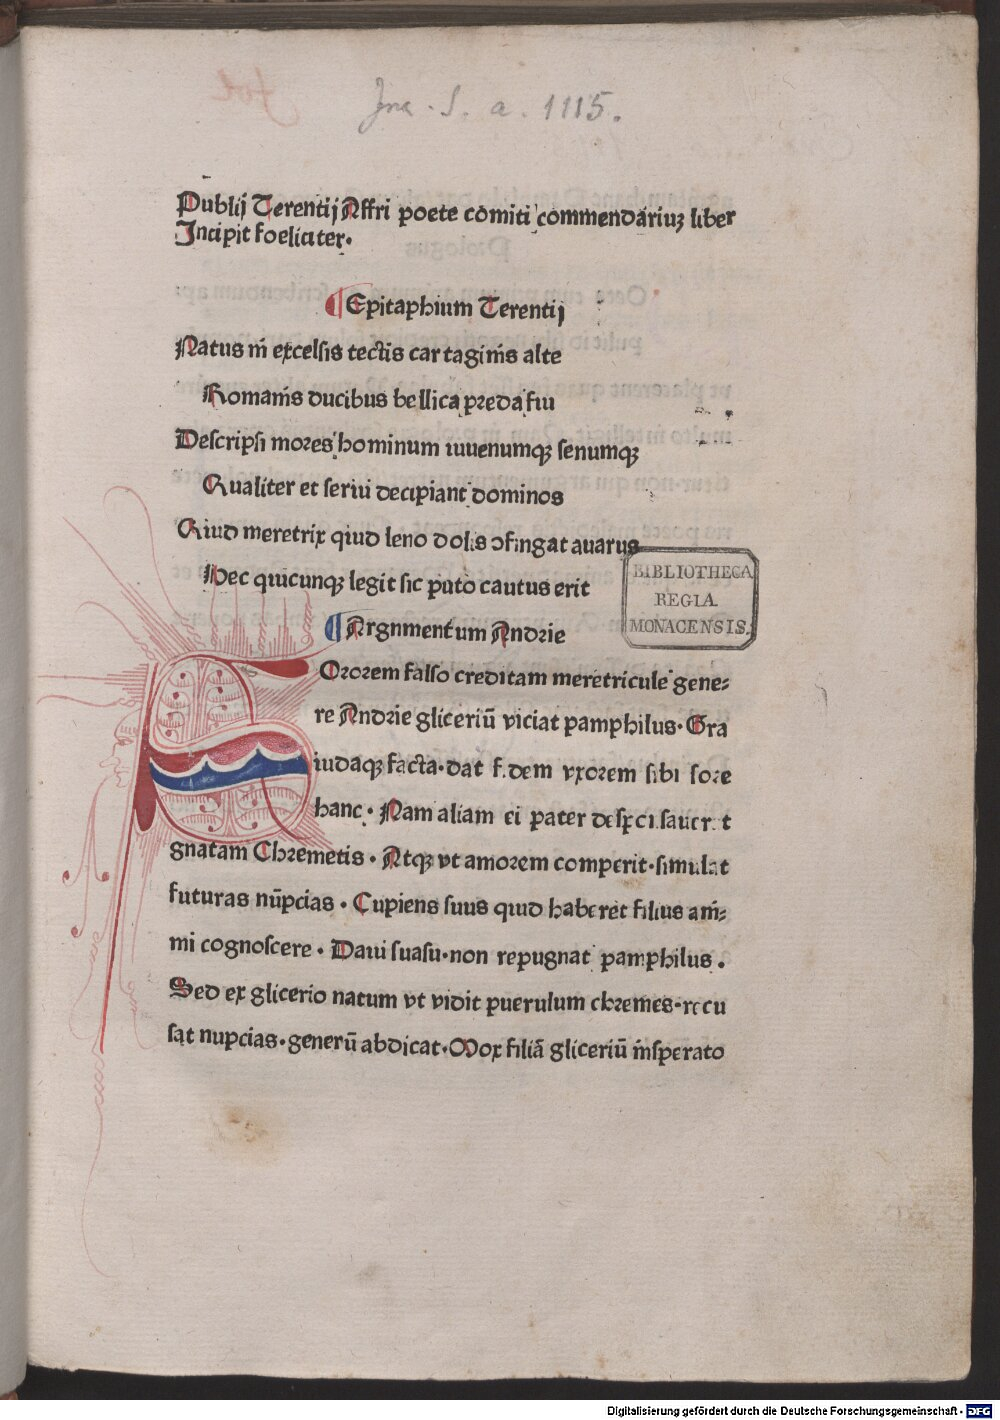 Inc. S. a. 1115.
Publij Terentij Affri poete comiti commendariuz liber
Incipit foeliciter.
Epitaphium Terentij
Natus in excelsis tectis cartaginis alte
Romanis ducibus bellica preda fui
Descripsi mores hominum iuuenumqꝫ senumqꝫ
Qualiter et serui decipiant dominos
Quid meretrix quid leno dolis ↄfingat auarus
Hec quicunqꝫ legit sic puto cautus erit
Argnmentum Andrie
SOrorem falso creditam meretricule gene⸗
re Andrie gliceriū viciat pamphilus. Gra
iudaqꝫ facta. dat fidem vxorem sibi fore
hanc. Nam aliam ei pater despōsauerat
gnatam Chremetis. Atqꝫ vt amorem comperit. simulat
futuras nūpcias. Cupiens suus quid haberet filius ani⸗
mi cognoscere. Daui suasu. non repugnat pamphilus.
Sed ex glicerio natum vt vidit puerulum chremes. recu
sat nupcias. generū abdicat. Mox filiā gliceriū insperato
BIBLIOTHECA
REGIA
MONACENSIS.
Digitalisierung gefördert durch die Deutsche Forschungsgemeinschaft - DFG